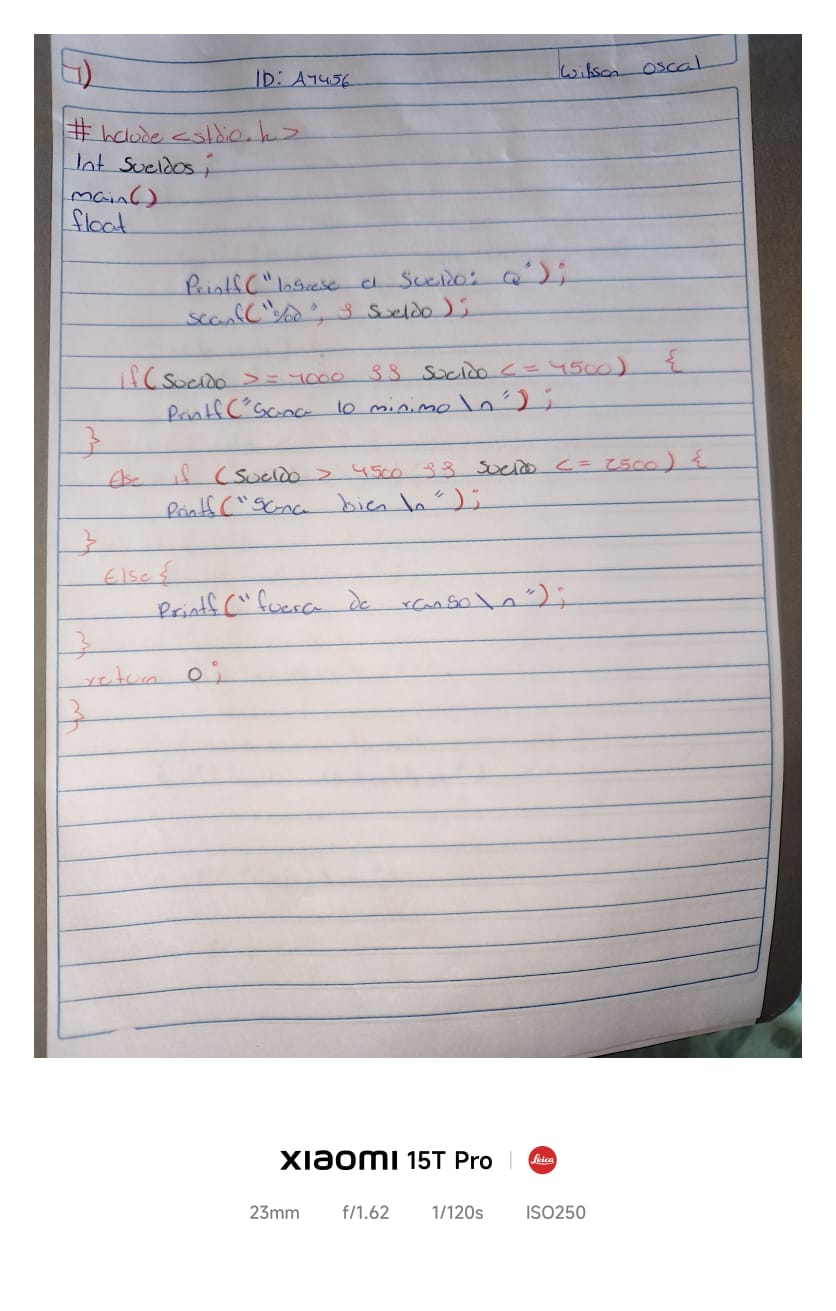 7) ID: A7456 Wilson Oscal
# Include <stdio.h>
Int Sueldos;
main()
float
Printf("Ingrese el Sueldo: Q");
scanf("%d", & sueldo);
if(sueldo >= 4000 && sueldo <= 4500) {
Printf("Gana lo minimo \n");
}
Else if (sueldo > 4500 && sueldo <= 7500) {
Printf("Gana bien \n");
}
Else {
Printf("fuera de rango \n");
}
return 0;
}
XIAOMI 15T Pro | Leica
23mm f/1.62 1/120s ISO250